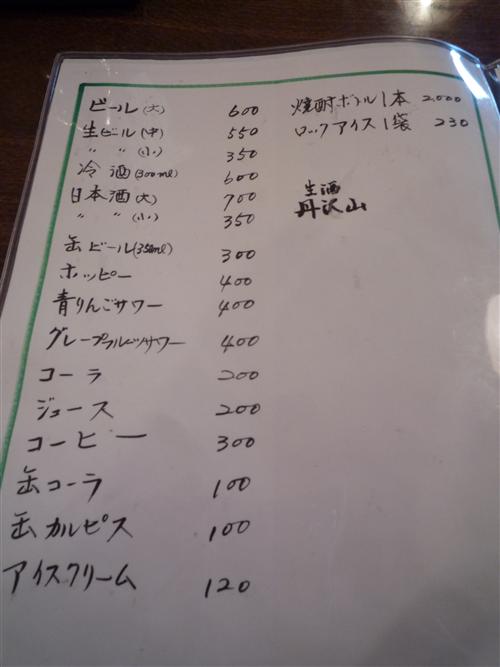 ビール(大) 600
生ビール(中) 550
〃 〃 (小) 350
冷酒(300ml) 600
日本酒(大) 700
〃 〃 (小) 350
缶ビール(350ml) 300
ホッピー 400
青りんごサワー 400
グレープフルーツサワー 400
コーラ 200
ジュース 200
コーヒー 300
缶コーラ 100
缶カルピス 100
アイスクリーム 120
焼酎ボトル1本 2,000
ロックアイス1袋 230
生酒
丹沢山